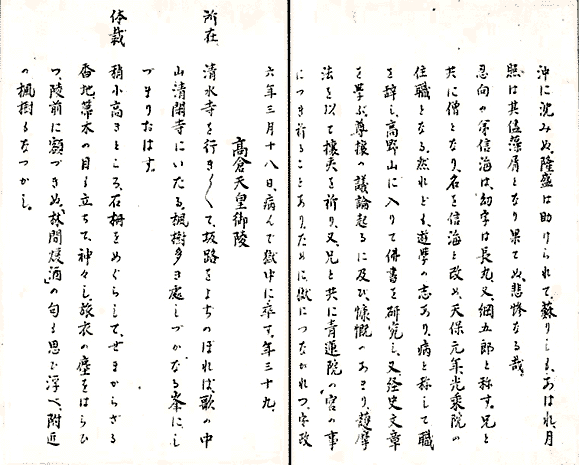 沖に沈みぬ、隆盛は助けられて、蘇りしも、あはれ、月
照は其儘藻屑となり果てぬ、悲惨なる哉、
忍向の弟信海は、幼字は長丸、又、綱五郎と称す。兄と
共に僧となり、名を信海と改め、天保元年、光乗院の
住職となる、然れども、遊学の志あり、病と称して職
を辞し、高野山に入りて佛書を研究し、又、経史文章
を学ぶ、尊攘の議論起るに及び、慷慨のあまり、護摩
法を以て攘夷を祈り、又、兄と共に青蓮院の宮の事
につき祈ることあり、ために獄につながれつ、安政
六年三月十八日、病んで獄中に卒す、年三十九、
高倉天皇御陵
所在 清水寺を行き〳〵て、坂路をよぢのぼれば、歌の中
山清閑寺にいたる、楓樹多き處、しづかなる峯に、し
づまりたはす。
体裁 稍小高きところ、石柵をめぐらして、せまからざる
香地、幕木の目も立ちて、神々し、旅衣の塵をはらひ
つ、陵前に額づきぬ、「林間煖酒」の句も思ひ浮べ、附近
の楓樹もなつかし。